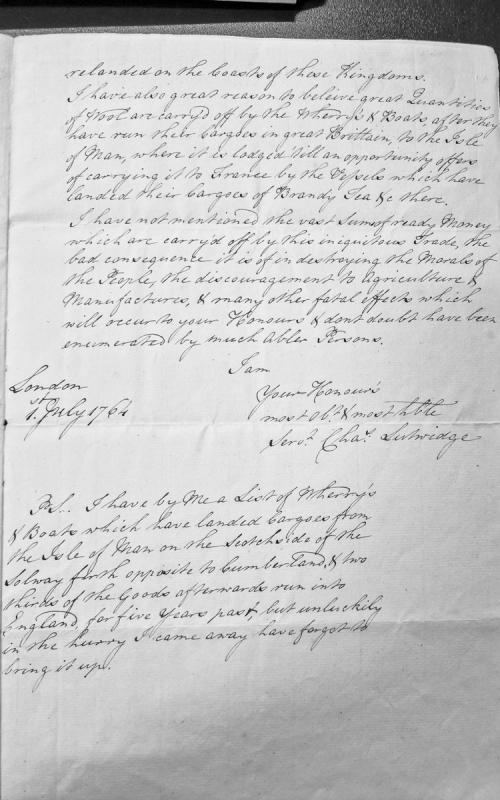 relanded on the Coasts of these Kingdoms.
I have also great reason to beleive great Quantities
of Wool are carry'd off by the Wherry's & Boats after they
have run their Cargoes in great Brittain, to the Isle
of Man, where it is lodged till an opportunity offers
of carrying it to France by the Vessels which have
landed their Cargoes of Brandy Tea &c there.
I have not mentioned the vast Sums of ready Money
which are carry'd off by this iniquitous Trade, the
bad consequence it is of in destroying the Morals of
the People, the discouragement to Agriculture &
Manufactures, & many other fatal effects which
will occur to your Honours & dont doubt have been
enumerated by much abler Persons.
I am
Your Honour's
London
1st. July 1764
most Obt. & most hble
Servt. Chas. Lutwidge
P.S. I have by Me a List of Wherry's
& Boats which have landed Cargoes from
the Isle of Man on the Scotch side of the
Solway firth opposite to Cumberland, & two
thirds of the Goods afterwards run into
England, for five Years past, but unluckily
in the hurry I came away have forgot to
bring it up.